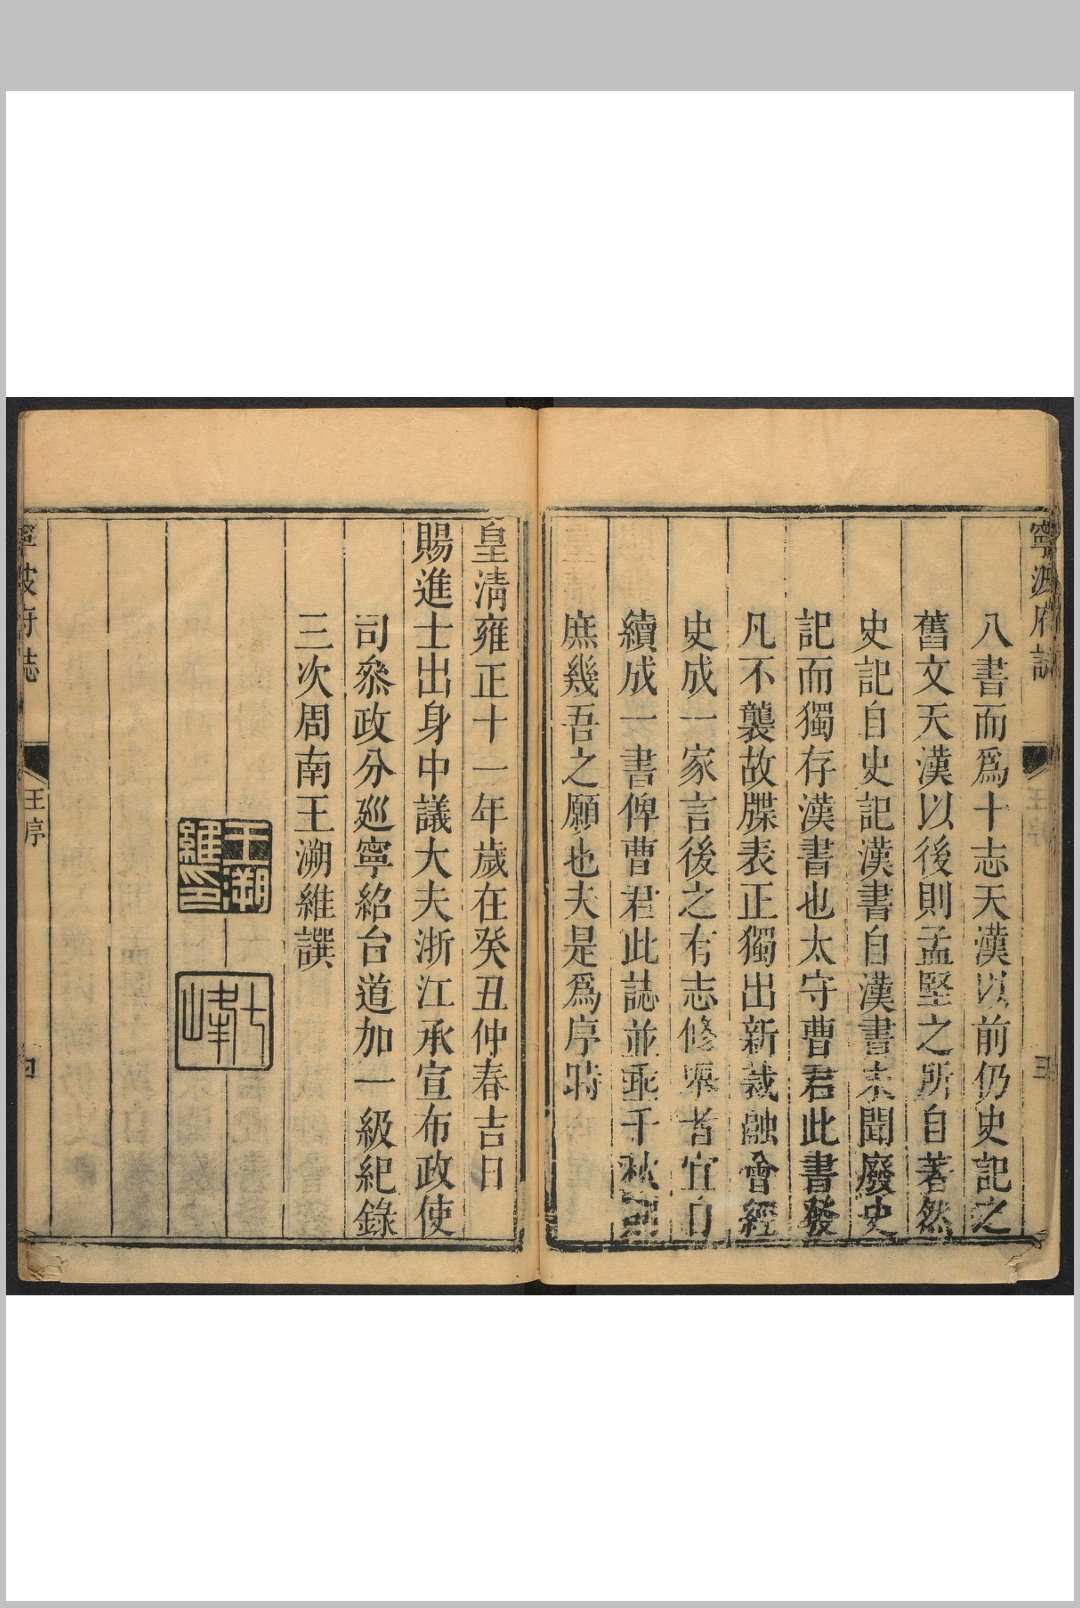 寧波府誌
八書而爲十志天漢以前仍史記之
舊文天漢以後則孟堅之所自著然
史記自史記漢書自漢書未聞廢史
記而獨存漢書也太守曹君此書發
凡不襲故牒表正獨出新裁融會經
史成一家言後之有志修纂者宜自
續成一書俾曹君此誌並垂千秋
庶幾吾之願也夫是爲序時
三
皇清雍正十一年歲在癸丑仲春吉日
賜進士出身中議大夫浙江承宣布政使
司叅政分廵寧紹台道加一級紀錄
三次周南王溯維譔
王溯維印
七峰
寧波府誌
王序
四